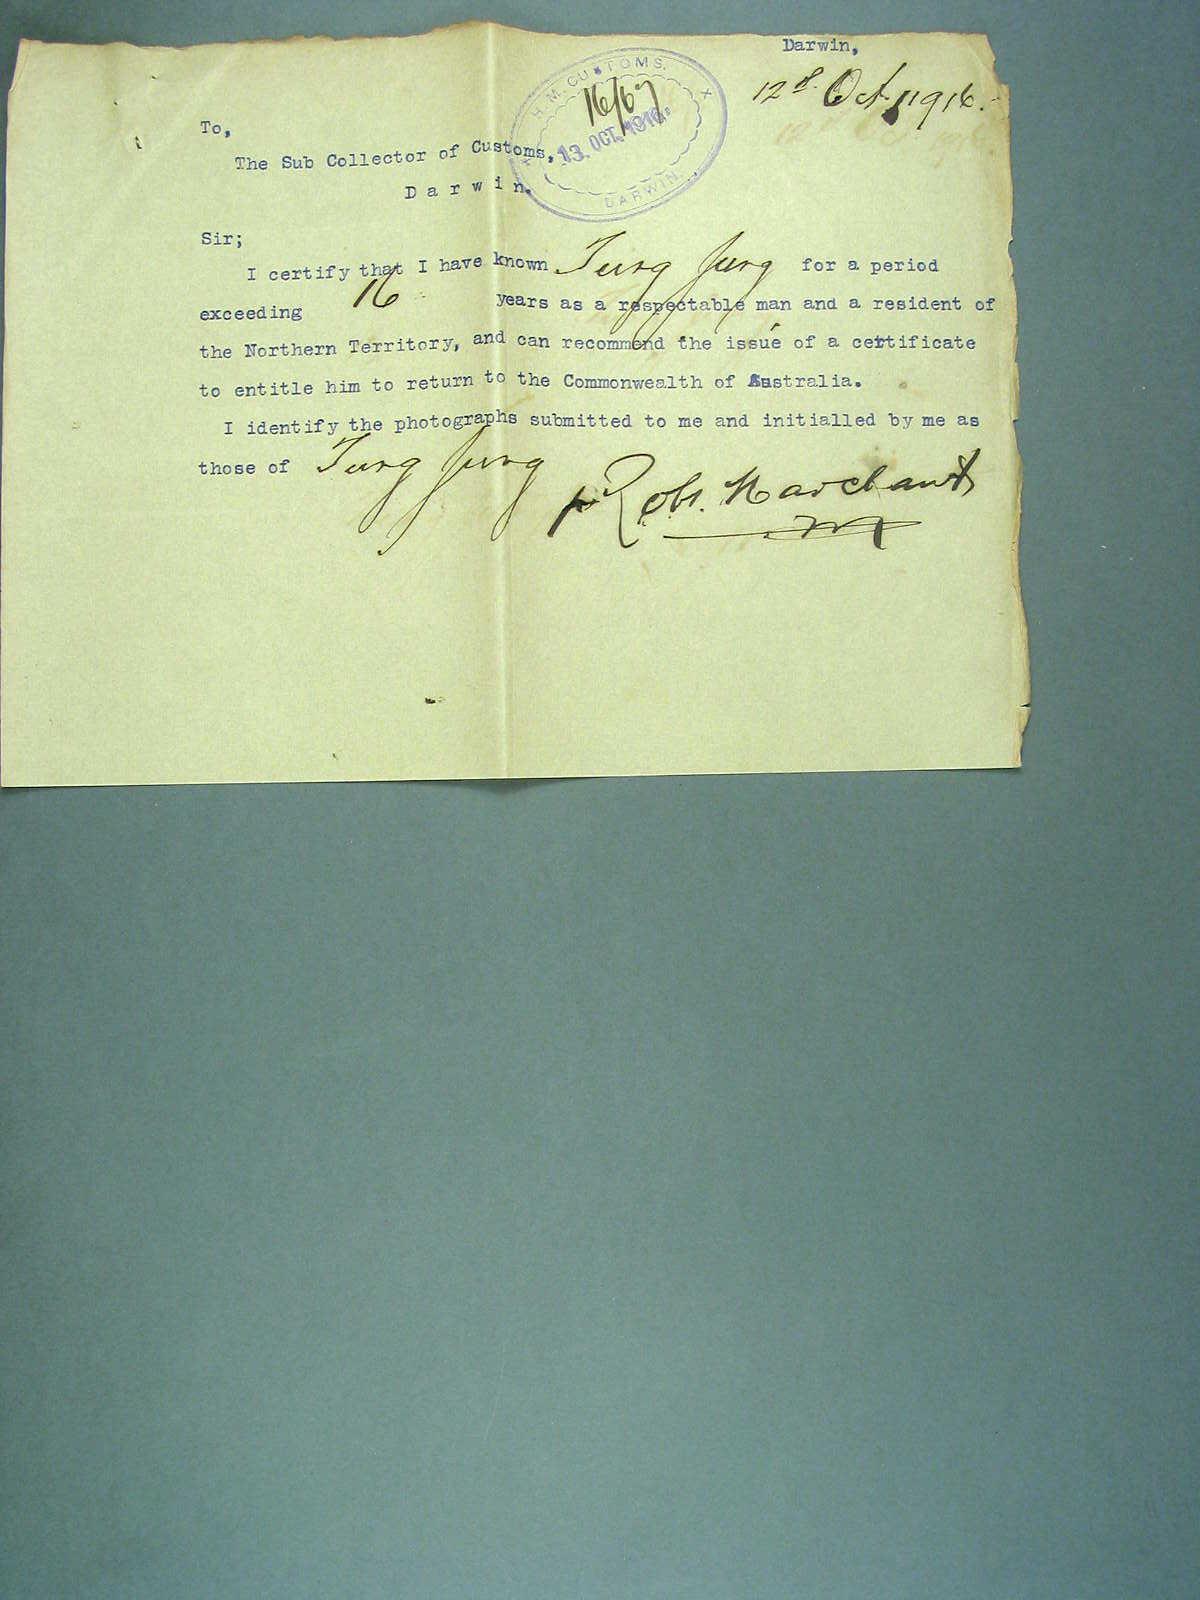 Darwin,
12th Oct, 1916.
H.M. CUSTOMS.
16/67
13. OCT. 1916
DARWIN.
To,
The Sub Collector of Customs,
Darwin.
Sir;
I certify that I have known Jung Jung for a period
exceeding 16 years as a respectable man and a resident of
the Northern Territory, and can recommend the issue of a certificate
to entitle him to return to the Commonwealth of Australia.
I identify the photographs submitted to me and initialled by me as
those of Jung Jung
Robt. Marchant